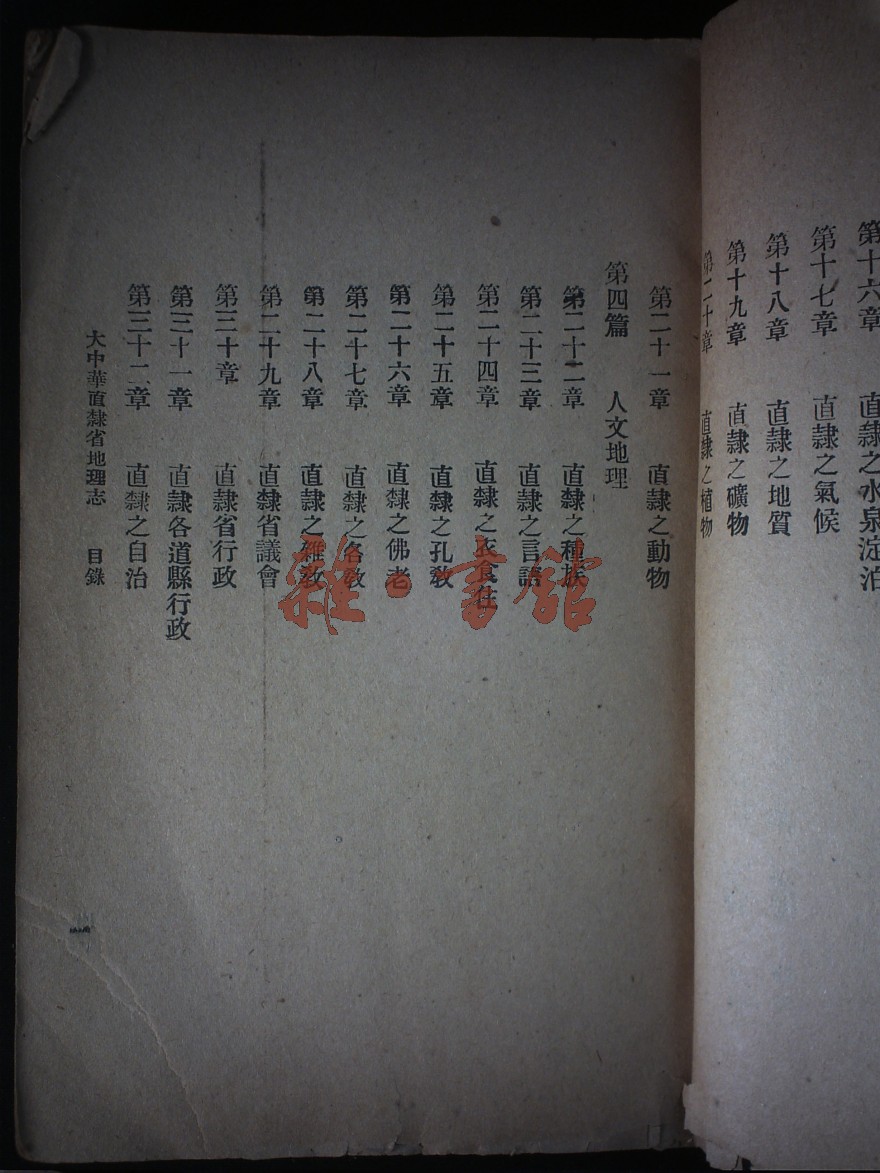 第十六章　直隸之水泉淀泊
第十七章　直隸之氣候
第十八章　直隸之地質
第十九章　直隸之礦物
第二十章　直隸之植物
第二十一章　直隸之動物
第四篇　人文地理
第二十二章　直隸之種族
第二十三章　直隸之言語
第二十四章　直隸之衣食住
第二十五章　直隸之孔敎
第二十六章　直隸之佛老
第二十七章　直隸之各敎
第二十八章　直隸之雜敎
第二十九章　直隸省議會
第三十章　直隸省行政
第三十一章　直隸各道縣行政
第三十二章　直隸之自治
大中華直隸省地理志　目錄
雜·書館